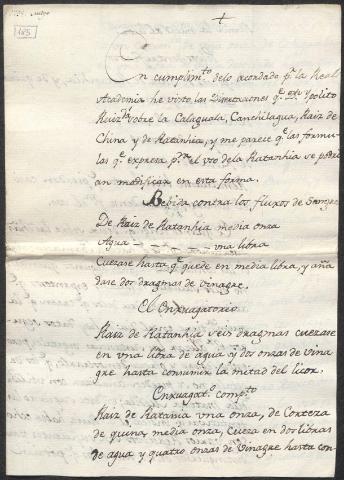 185
+
En cumplim.to delo acordado p.r la Real
Academia he visto las Disertaciones q.e
Ruiz sobre la Calaguala, Canchilagua, Raiz de
China y de Ratanhia, y me parece q.e las formu-
las q.e expresa p.a el vso dela Ratanhia se podri
an modificar en esta forma.
Bebida contra los fluxos de Sangre
De Raiz de Ratanhia media onza
Agua vna libra
Cuezase hasta q.e quede en media libra, y aña
dase dos dragmas de Vinagre.
El Enxuagatorio
Raiz de Ratanhia seis dragmas cuezase
en vna libra de agua y dos onzas de vina
gre hasta consumir la mitad del licor.
Enxuagat.o comp.to
Raiz de Ratania vna onza, de Corteza
de quina, media onza, Cueza en dos libras
de agua y quatro onzas de Vinagre hasta con